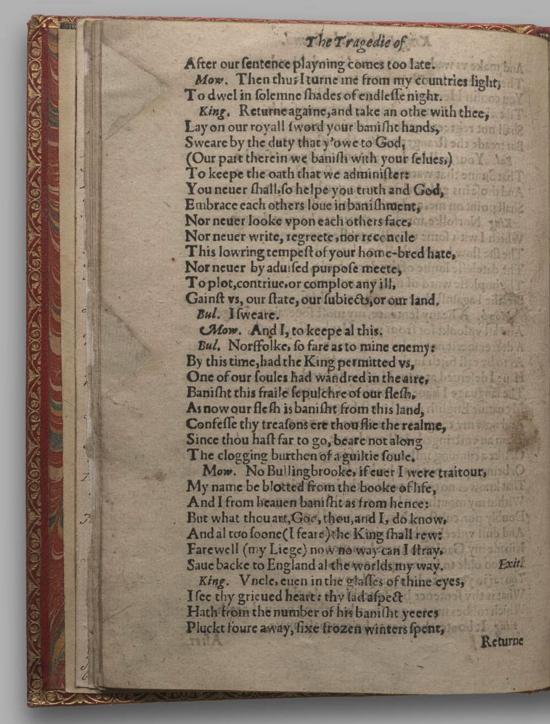 The Tragedie of
After our ſentence playning comes too late.
Mow. Then thus I turne me from my countries light,
To dwel in ſolemne ſhades of endleſſe night.
King. Returne againe,and take an othe with thee,
Lay on our royall ſword your baniſht hands,
Sweare by the duty that y'owe to God,
(Our part therein we baniſh with your ſelues,)
To keepe the oath that we adminiſter:
You neuer ſhall,ſo helpe you truth and God,
Embrace each others loue in baniſhment,
Nor neuer looke vpon each others face,
Nor neuer write, regreete,nor reconcile
This lowring tempeſt of your home-bred hate,
Nor neuer by aduiſed purpoſe meete,
To plot,contriue,or complot any ill,
Gainſt vs, our ſtate, our ſubiects,or our land.
Bul. I ſweare.
Mow. And I, to keepe al this.
Bul. Norffolke, ſo fare as to mine enemy:
By this time,had the King permitted vs,
One of our ſoules had wandred in the aire,
Baniſht this fraile ſepulchre of our fleſh,
As now our fleſh is baniſht from this land,
Confeſſe thy treaſons ere thou flie the realme,
Since thou haſt far to go, beare not along
The clogging burthen of a guiltie ſoule.
Mow. No Bullingbrooke, if euer I were traitour,
My name be blotted from the booke of life,
And I from heauen baniſht as from hence:
But what thou art,God,thou,and I, do know,
And al too ſoone(I feare)the King ſhall rew:
Farewell (my Liege) now no way can I ſtray,
Saue backe to England al the worlds my way. Exit.
King. Vncle, euen in the glaſſes of thine eyes,
I ſee thy grieued heart: thy ſad aſpect
Hath from the number of his baniſht yeeres
Pluckt foure away, ſixe frozen winters ſpent,
Returne